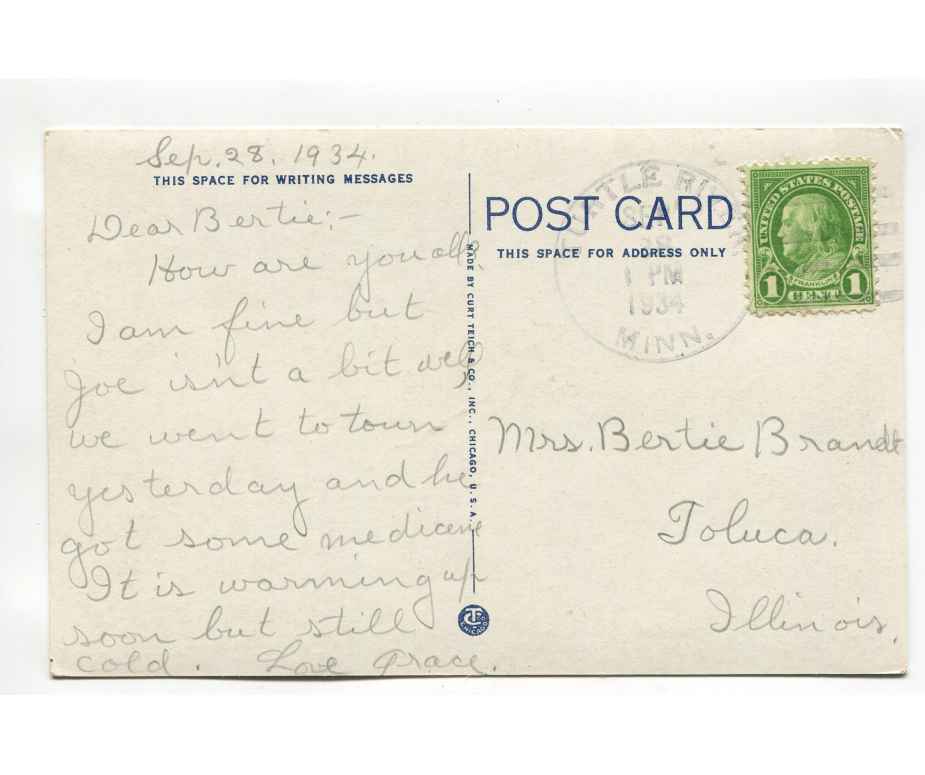 Sep. 28. 1934.
THIS SPACE FOR WRITING MESSAGES
Dear Bertie:-
How are you all?
I am fine but
Joe isn't a bit well,
we went to town
yesterday and he
got some medicene
It is warming up
soon but still
cold. Love Grace.
MADE BY CURT TEICH & CO., INC., CHICAGO, U.S.A.
POST CARD
THIS SPACE FOR ADDRESS ONLY
TURTLE RIVER
SEP
28
1 PM
1934
MINN.
UNITED STATES POSTAGE
FRANKLIN
1 CENT 1
Mrs. Bertie Brandt
Toluca.
Illinois.
CHICAGO